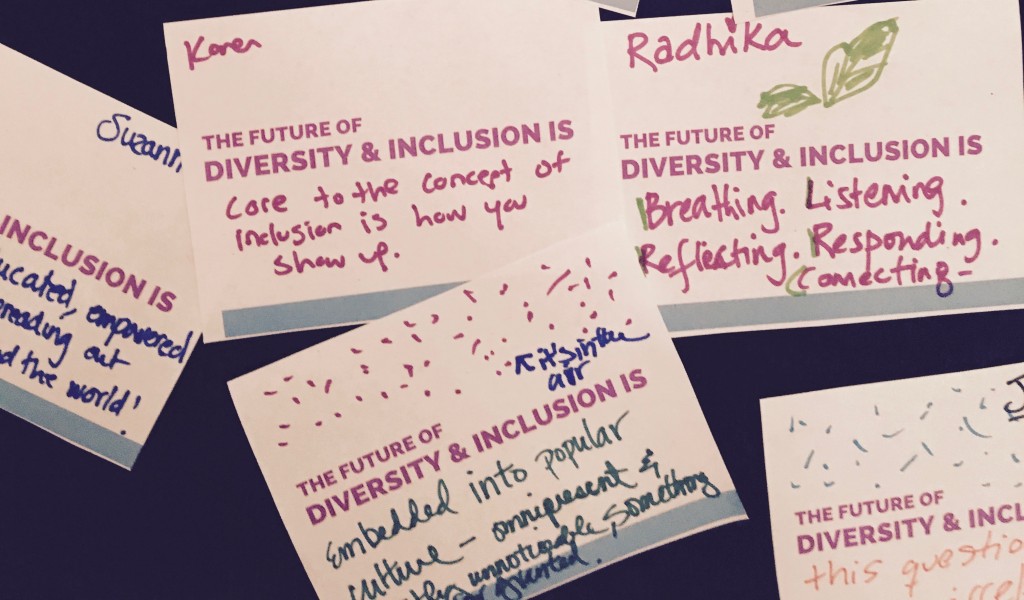 Karen
THE FUTURE OF
DIVERSITY & INCLUSION IS
Core to the concept of
inclusion is how you
show up.
Radhika
THE FUTURE OF
DIVERSITY & INCLUSION IS
Breathing. Listening.
Reflecting. Responding.
Connecting-
Suzann
INCLUSION IS
ucated, empowered
reading out
d the world!
it's in the
air
THE FUTURE OF
DIVERSITY & INCLUSION IS
Embedded into popular
culture - omnipresent &
unnoticeable, something
granted.
THE FUTURE OF
DIVERSITY & INCL
this questio